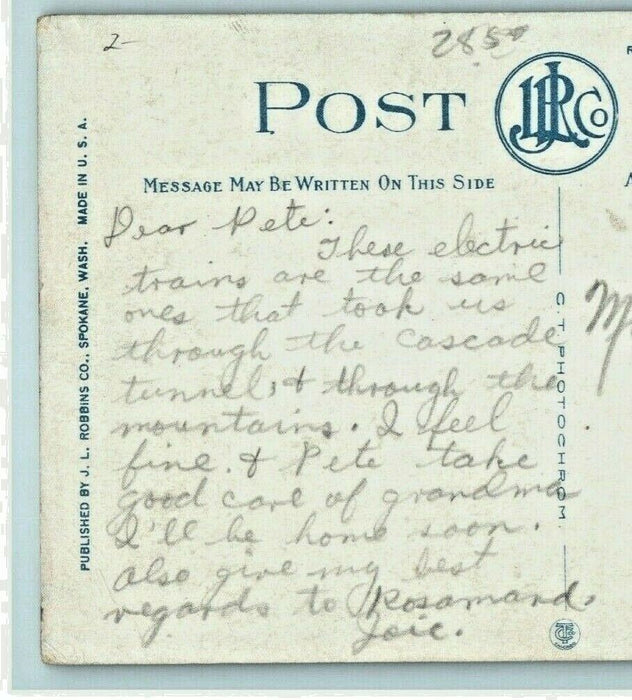 2-
2850
POST
JLR Co
MESSAGE MAY BE WRITTEN ON THIS SIDE
PUBLISHED BY J. L. ROBBINS CO., SPOKANE, WASH. MADE IN U. S. A.
Dear Pete:
These electric
trains are the same
ones that took us
through the Cascade
tunnel, & through the
mountains. I feel
fine. & Pete take
good care of grandma
I'll be home soon.
Also give my best
regards to Rosamand.
C. T. PHOTOCHROM